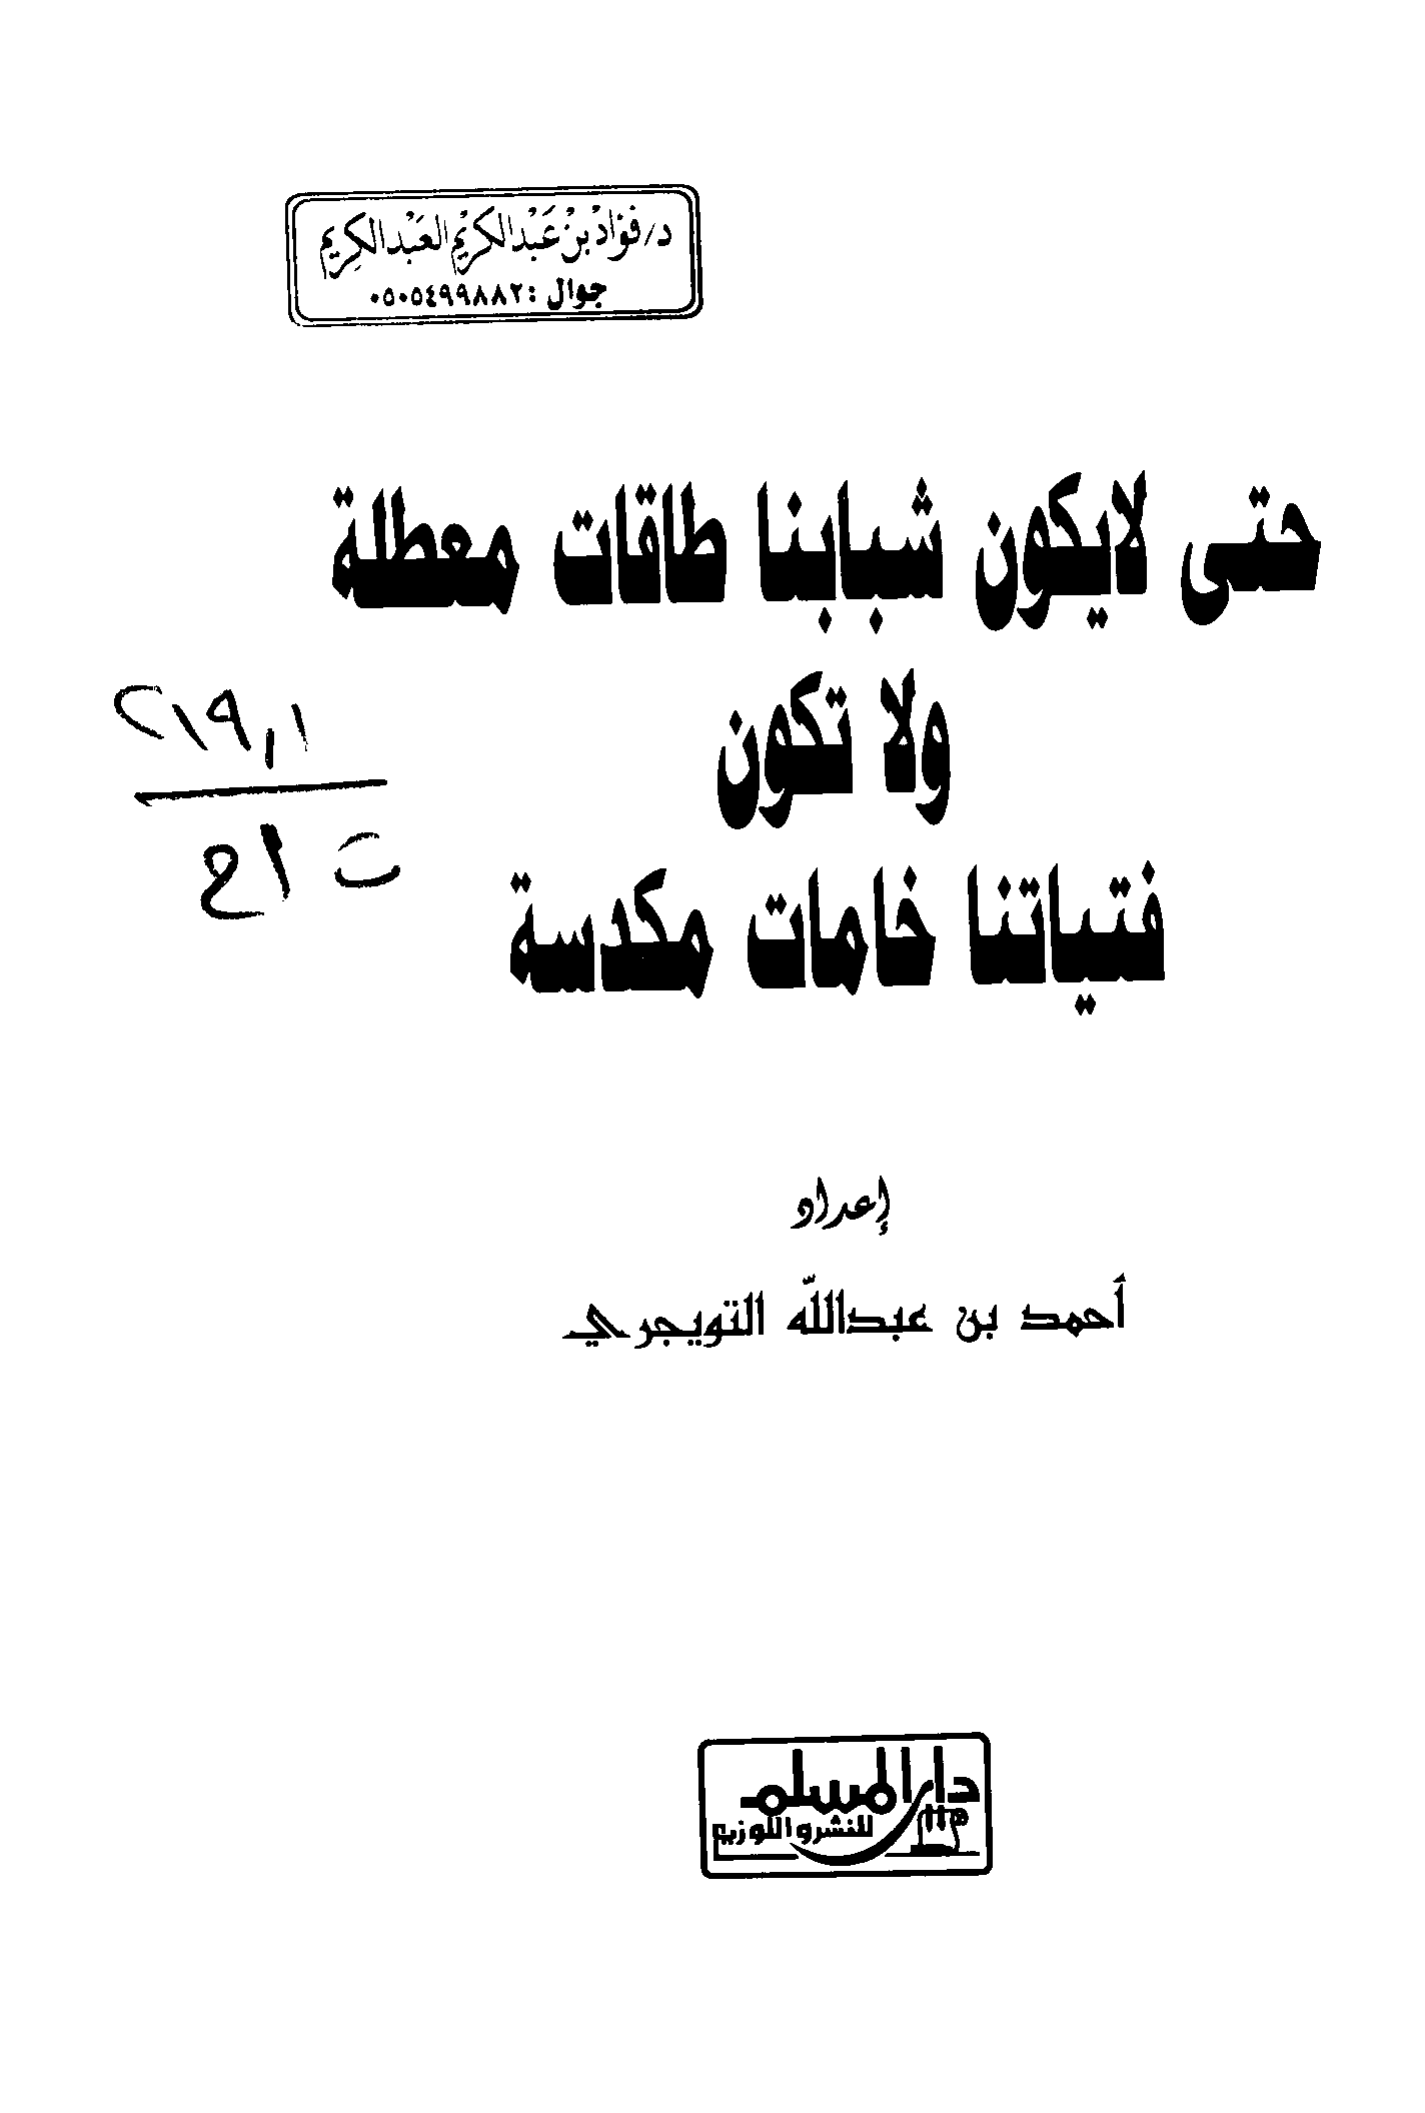 د/ فؤاد بن عبدالكريم العبدالكريم
جوال : ٠٥٠٥٤٩٩٨٨٢
حتى لايكون شبابنا طاقات معطلة
ولا تكون
فتياتنا خامات مكدسة
٢١٩,١
ت ا ح
إعداد
أحمد بن عبدالله التويجري
دار المسلم
للنشر والتوزيع